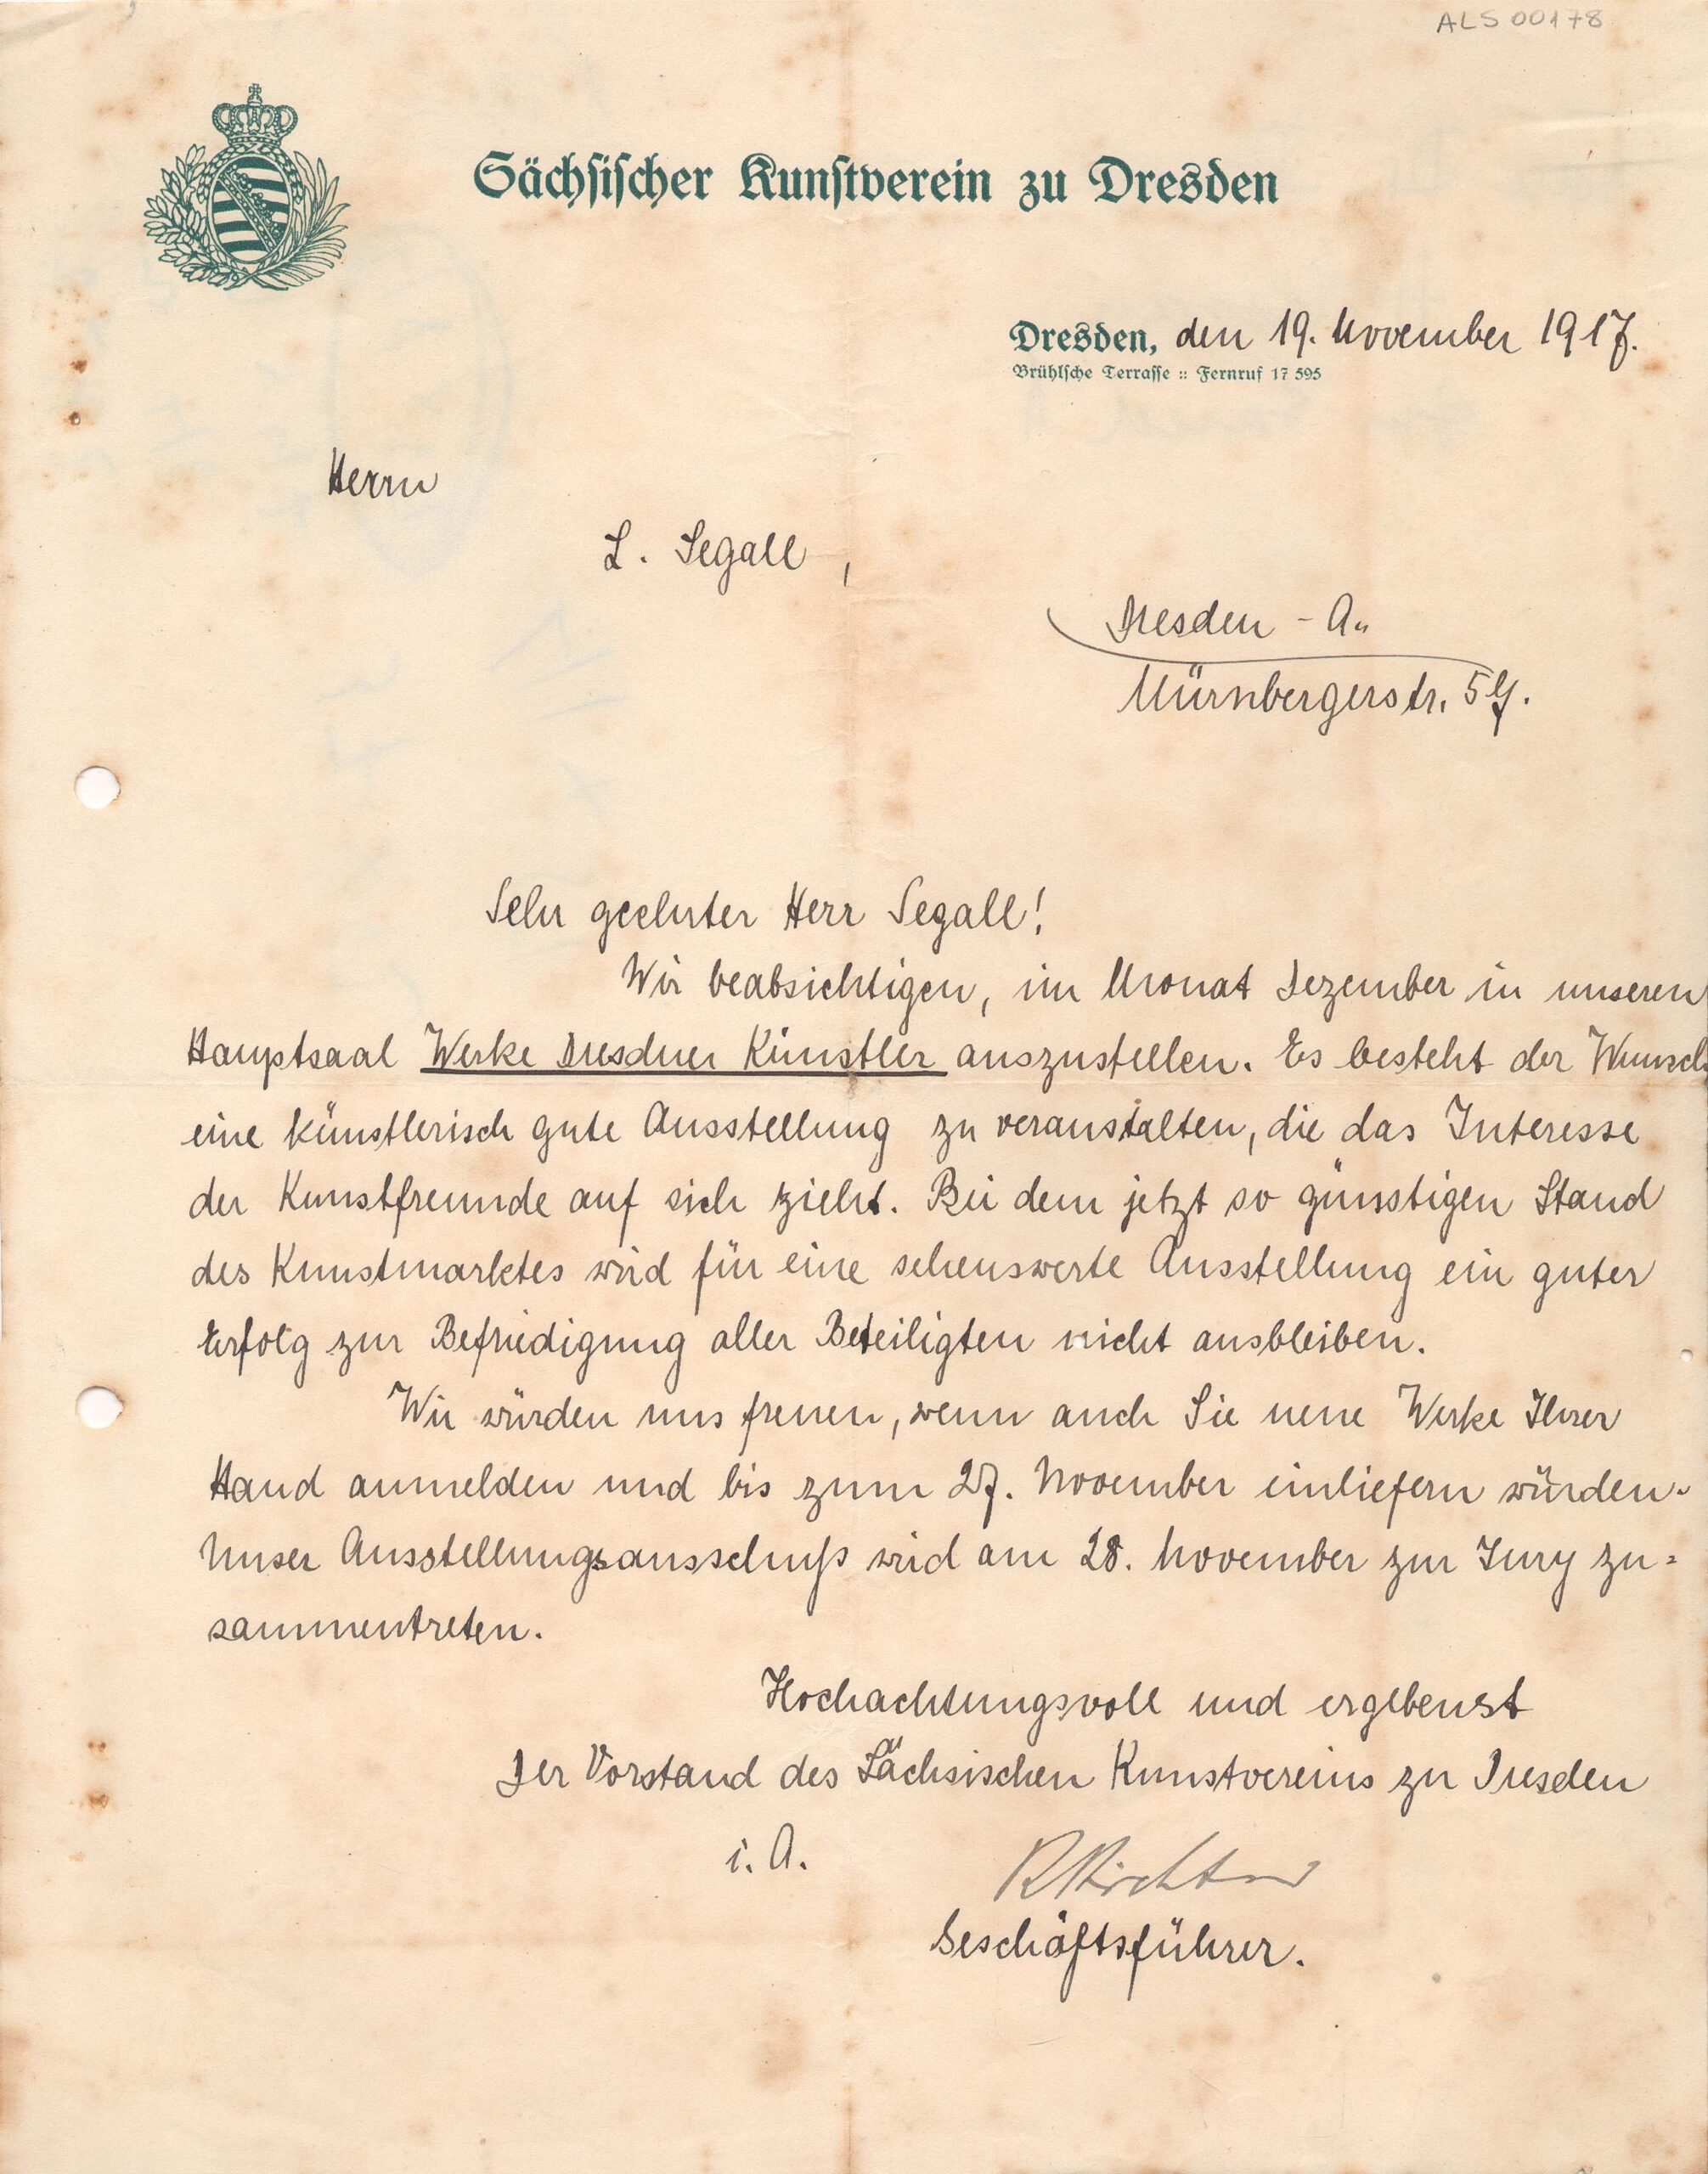 ALS 00178
Sächsischer Kunstverein zu Dresden
Dresden, den 19. November 1917.
Brühlsche Terrasse :: Fernruf 17 595
Herrn
L. Segall,
Dresden - A.
Nürnbergerstr.
Sehr geehrter Herr Segall!
Wir beabsichtigen, im Monat Dezember in unseren
Hauptsaal Werke Dresdner Künstler auszustellen. Es besteht der Wunsch
eine künstlerisch gute Ausstellung zu veranstalten, die das Interesse
der Kunstfreunde auf sich zieht. Bei dem jetzt so günstigen Stand
des Kunstmarktes wird für eine sehenswerte Ausstellung ein guter
Erfolg zur Befriedigung aller Beteiligten nicht ausbleiben.
Wir würden uns freuen, wenn auch Sie neue Werke Ihrer
Hand anmelden und bis zum 27. November einliefern würden.
Unser Ausstellungsausschuß wird am 28. November zur Jury zu=
sammentreten.
Hochachtungsvoll und ergebenst
Der Vorstand des Sächsischen Kunstvereins zu Dresden
i. A.
R Richter
Geschäftsführer.